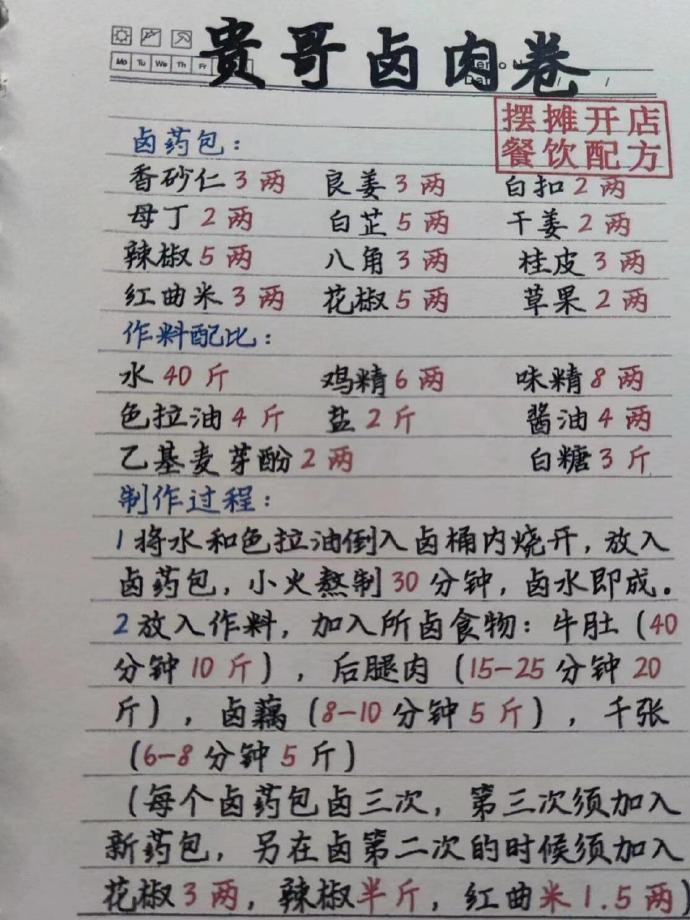 贵哥卤肉卷
Mo Tu We Th Fr
摆摊开店
餐饮配方
卤药包：
香砂仁3两 良姜3两 白扣2两
母丁2两 白芷5两 干姜2两
辣椒5两 八角3两 桂皮3两
红曲米3两 花椒5两 草果2两
作料配比：
水40斤 鸡精6两 味精8两
色拉油4斤 盐2斤 酱油4两
乙基麦芽酚2两 白糖3斤
制作过程：
1将水和色拉油倒入卤桶内烧开，放入
卤药包，小火熬制30分钟，卤水即成。
2放入作料，加入所卤食物：牛肚（40
分钟10斤），后腿肉（15-25分钟20
斤），卤藕（8-10分钟5斤），千张
（6-8分钟5斤）
（每个卤药包卤三次，第三次须加入
新药包，另在卤第二次的时候须加入
花椒3两，辣椒半斤，红曲米1.5两）